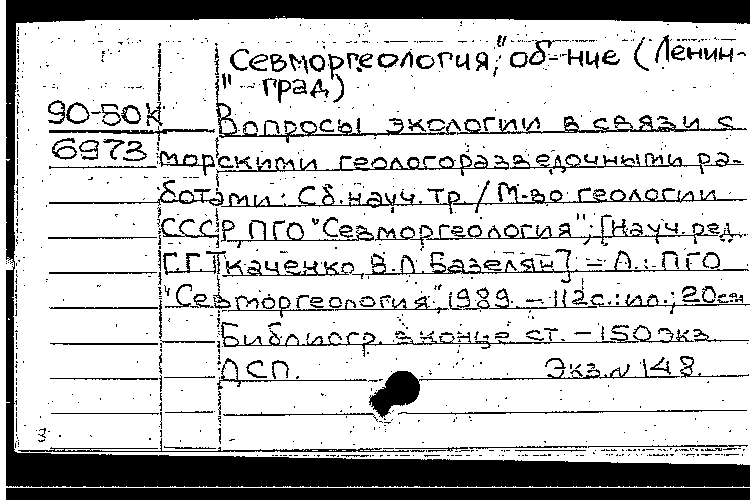 "Севморгеология," об-ние (Ленин-
град)
90-50К Вопросы экологии в связи с
6973 морскими геологоразведочными ра-
ботами: Сб. науч. тр. / М-во геологии
СССР, ПГО "Севморгеология"; [Науч. ред.
Г.Г. Ткаченко, В.Л. Базелян]. – Л.: ПГО
"Севморгеология", 1989. – 112с.: ил.; 20см
Библиогр. в конце ст. – 150 экз.
ДСП. Экз. № 148.